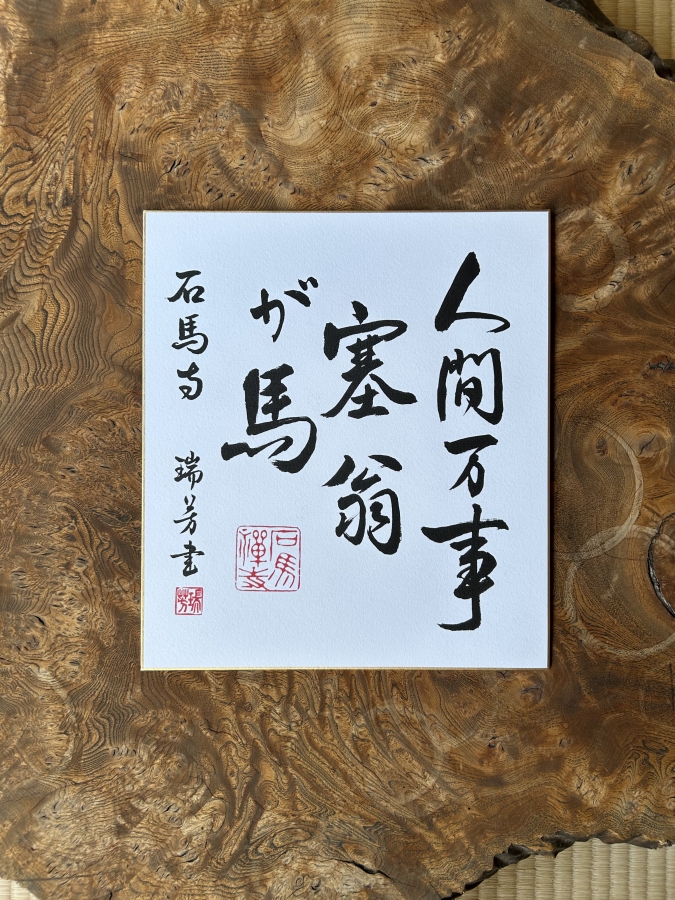 人間万事
塞翁
が馬
石馬寺 瑞芳書
石馬禅寺
瑞芳